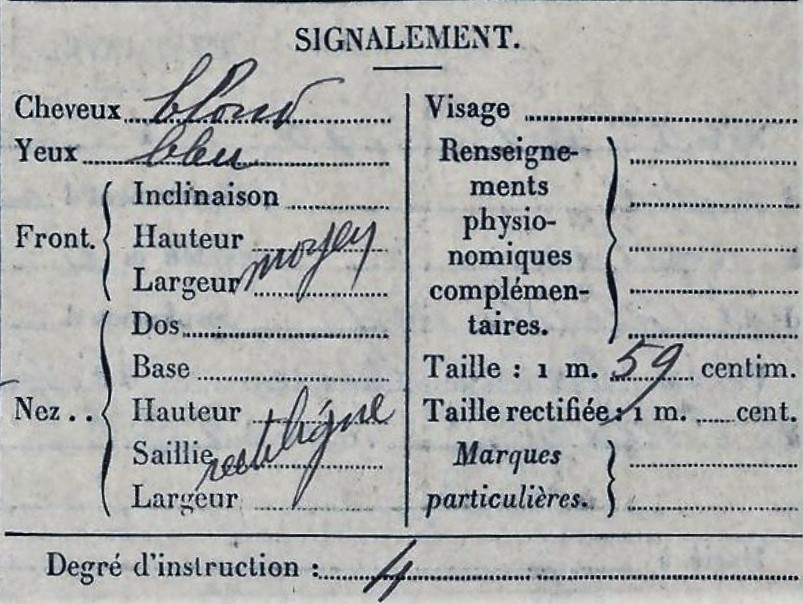 SIGNALEMENT.
Cheveux blond
Yeux bleu
Front.
Inclinaison
Hauteur moyen
Largeur
Nez..
Dos
Base
Hauteur rectiligne
Saillie
Largeur
Visage
Renseigne-
ments
physio-
nomiques
complémen-
taires.
Taille : 1 m. 59 centim.
Taille rectifiée : 1 m. cent.
Marques
particulières.
Degré d'instruction : 4